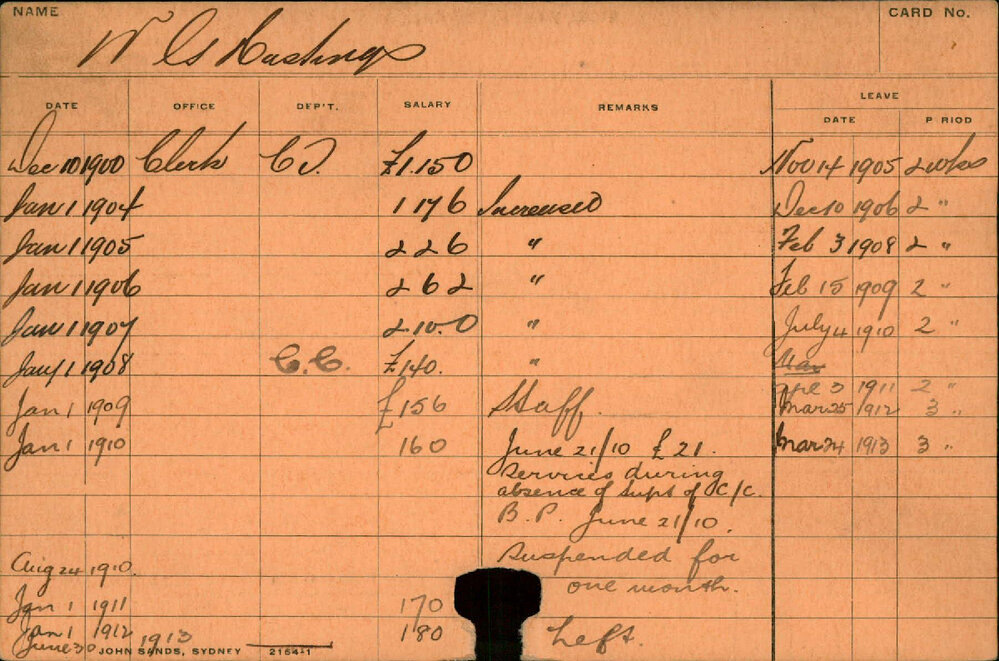 NAME W G Hastings CARD No.
DATE OFFICE DEP'T. SALARY REMARKS LEAVE
DATE P RIOD
Dec 10 1900 Clerk C.D. £1.15.0 Nov 14 1905 2 wks
Jan 1 1904 1 17 6 Increased Dec 10 1906 2 "
Jan 1 1905 2 2 6 " Feb 3 1908 2 "
Jan 1 1906 2 6 2 " Feb 15 1909 2 "
Jan 1 1907 2 10. 0 " July 4 1910 2 "
Jany 1 1908 C.C. £140. " Mar
Apl 3 1911 2 "
Jan 1 1909 £156 Staff. Mar 25 1912 3 "
Jan 1 1910 160 June 21/10 £21. Mar 24 1913 3 "
Services during
absence of Supt of C/C.
B.P. June 21/10.
Aug 24 1910. Suspended for
one month.
Jan 1 1911 170
Jan 1 1912 180 Left.
June 30 1913
JOHN SANDS, SYDNEY 2164-1